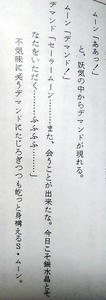 ムーン「ああっ！」
と、妖気の中からデマンドが現れる。
ムーン「デマンド！」
デマンド「セーラームーン……また、会うことが出来たな。今日こそ銀水晶とそ
なたをいただく……ふふふふ……」
不気味に笑うデマンドにたじろぎつつも屹っと身構えるＳ・ムーン。